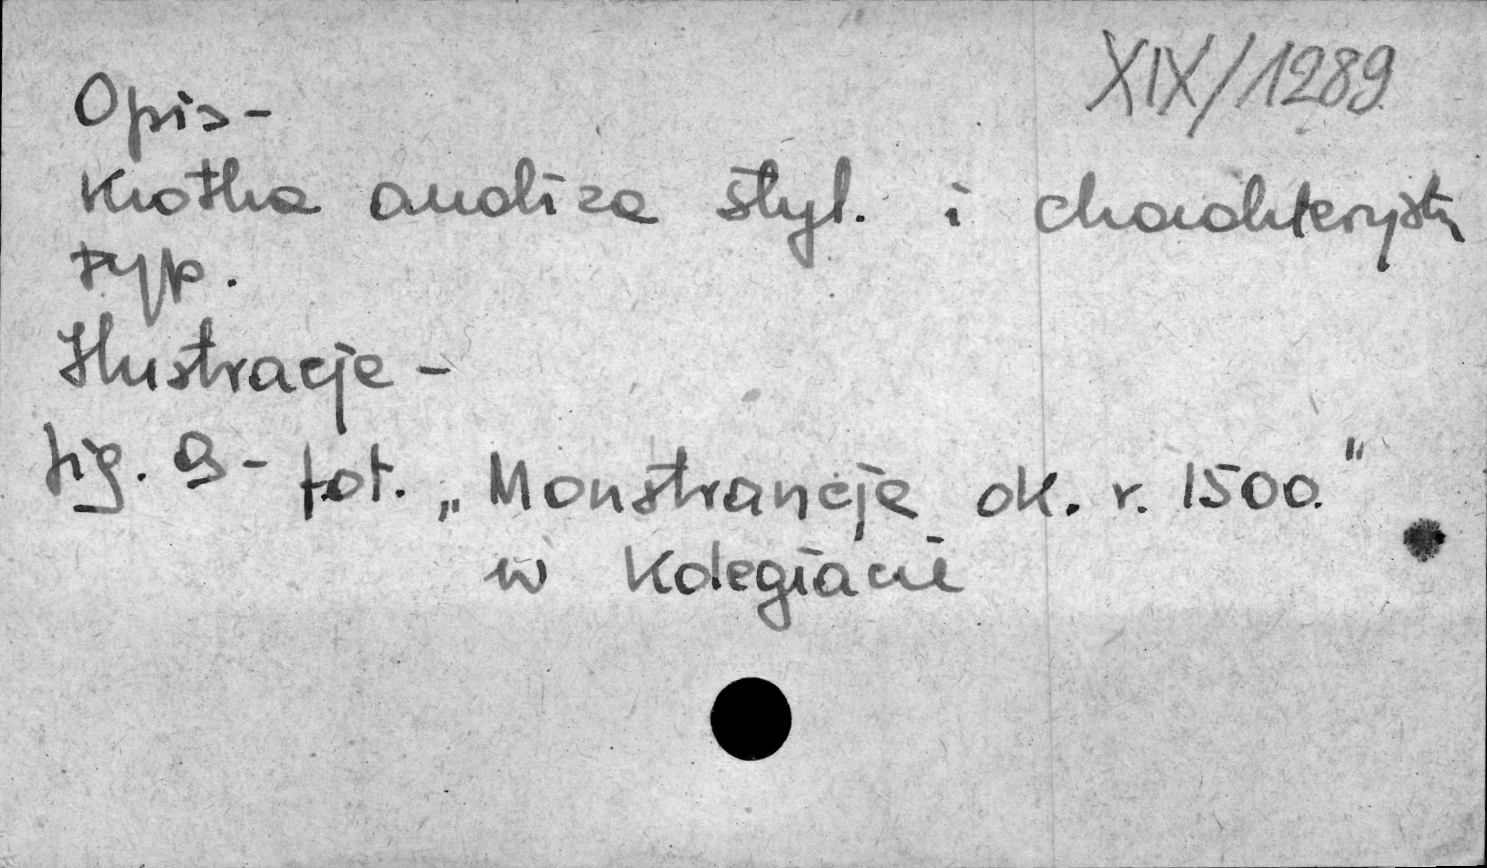 XIX/1289
Opis-
Krótka analiza styl. i charakteryst.
typ.
Ilustracje -
fig. 9 - fot. „Monstrancje ok. r. 1500."
w Kolegiacie